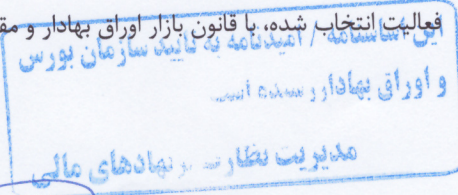 فعالیت انتخاب شده، با قانون بازار اوراق بهادار و مق
این اساسنامه / امیدنامه به تایید سازمان بورس
و اوراق بهادار رسیده است
مدیریت نظارت بر نهادهای مالی